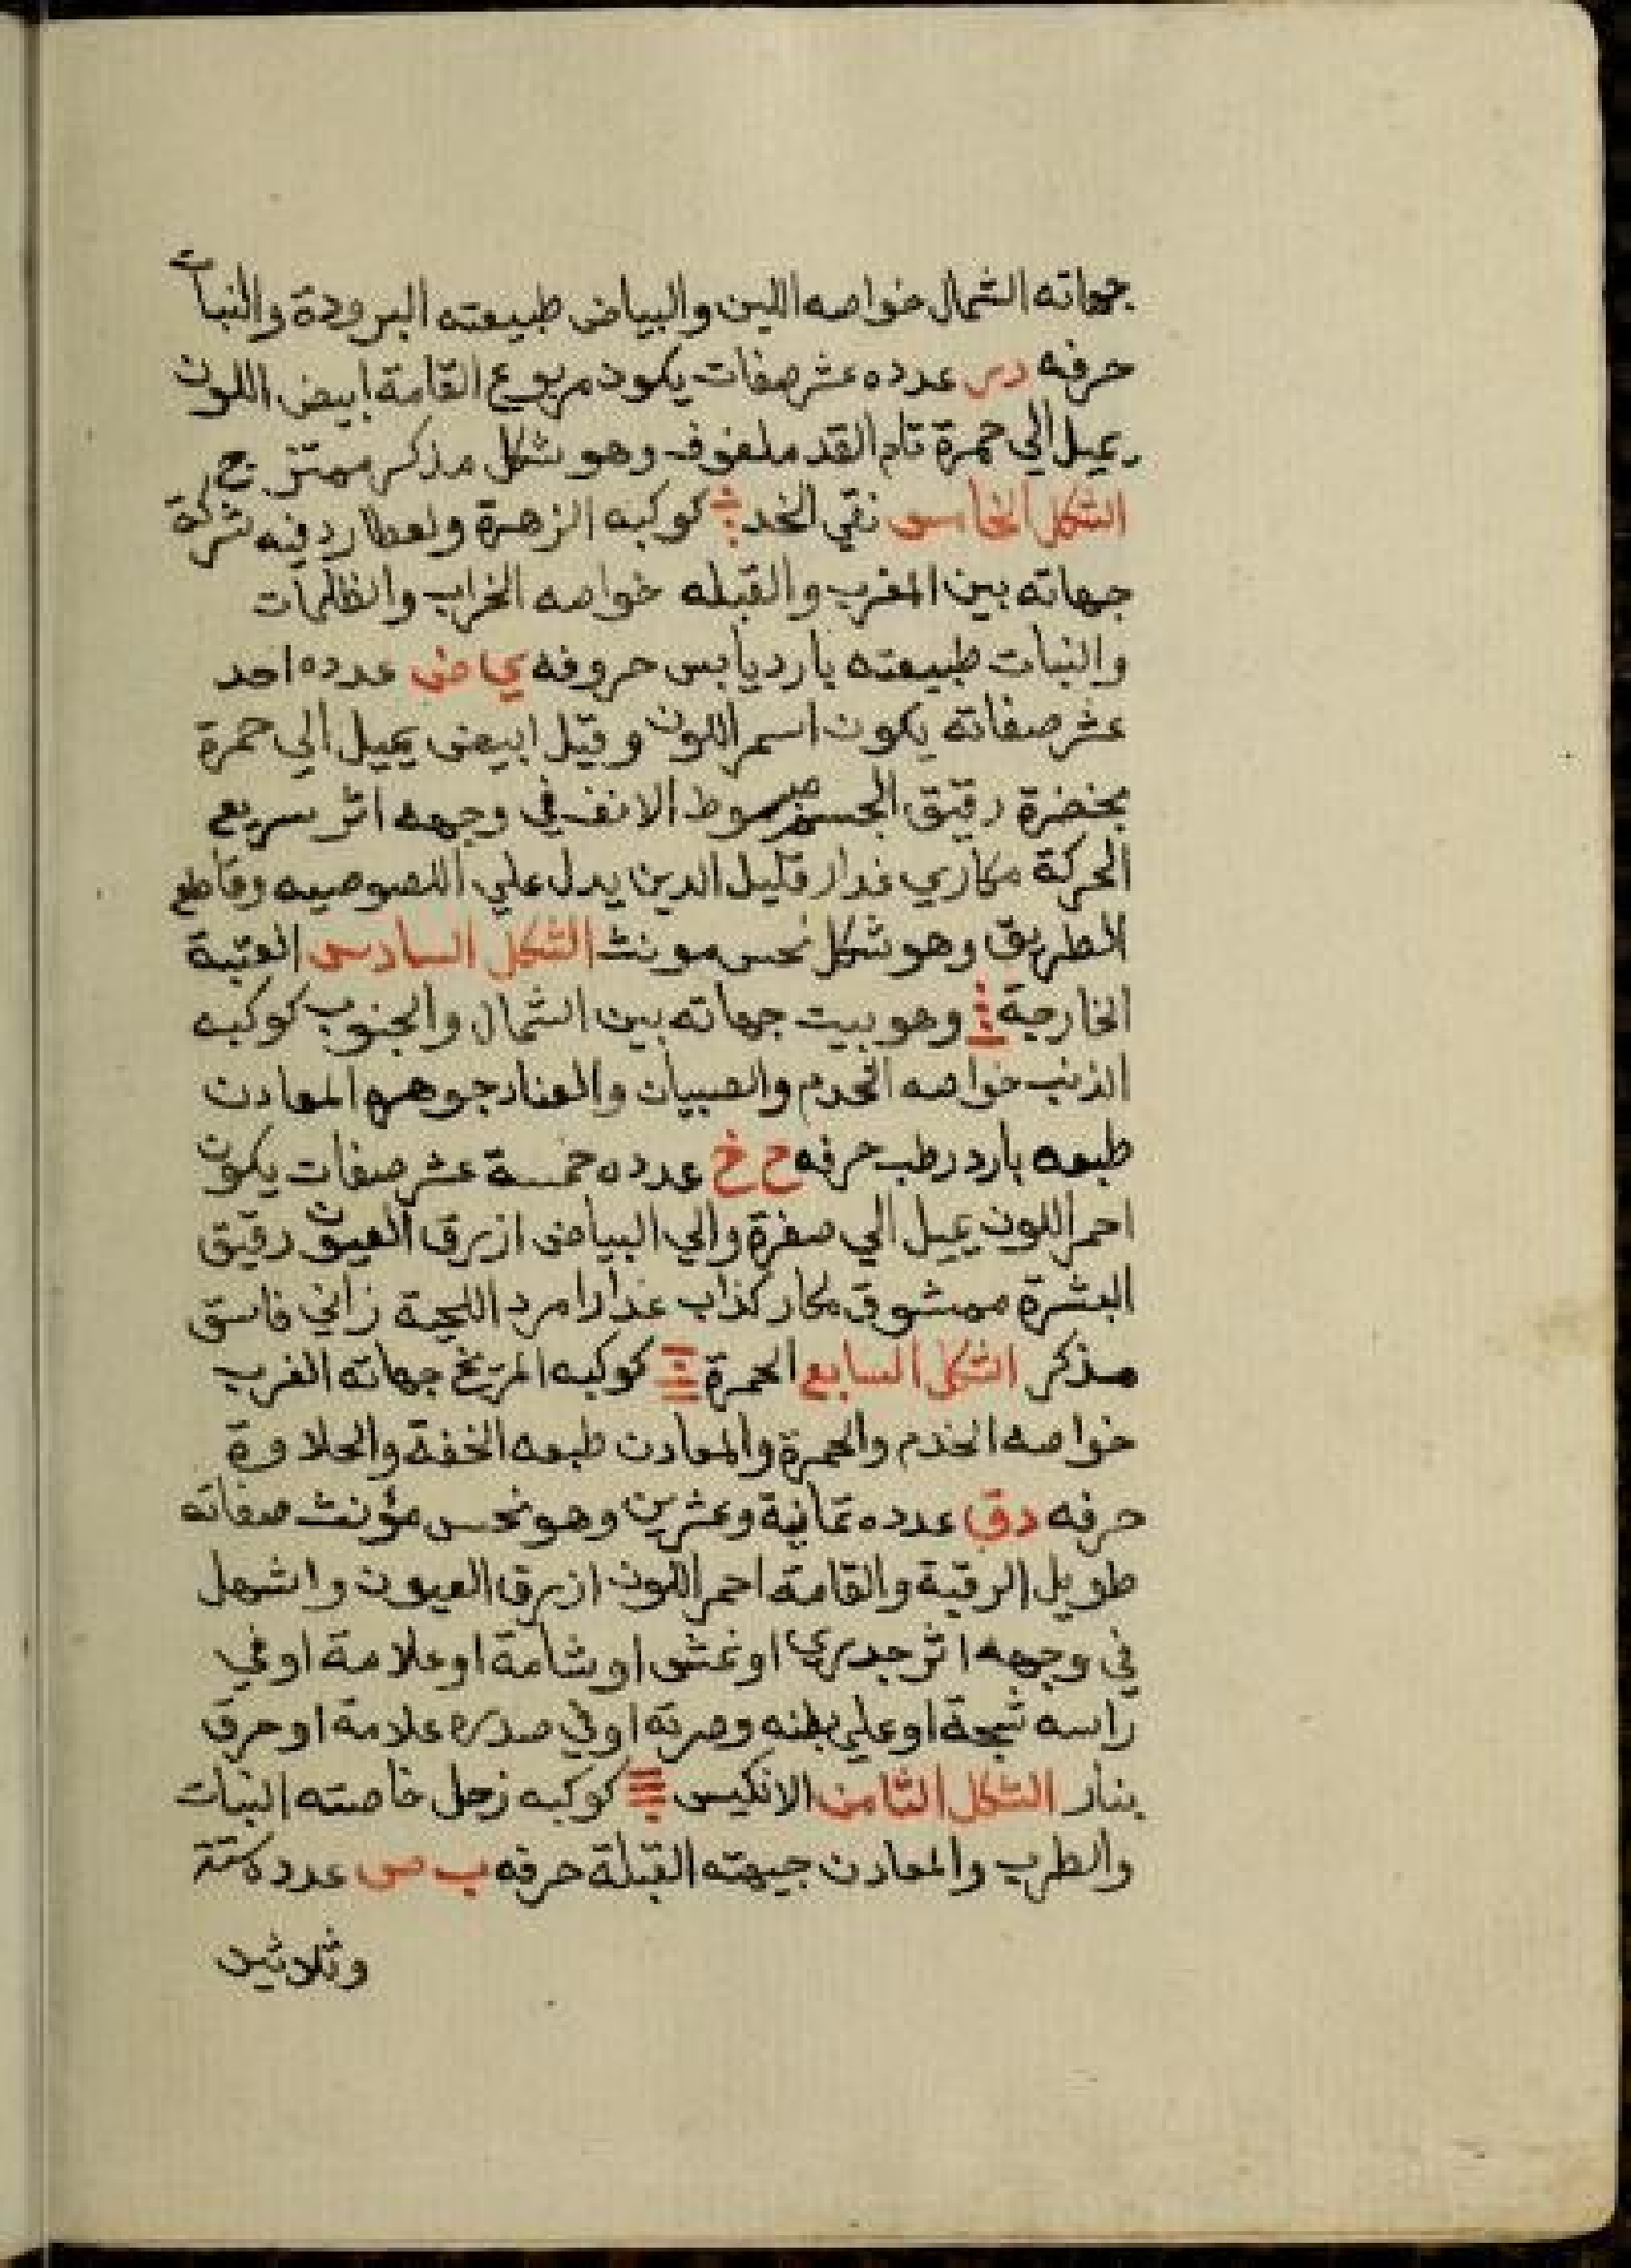 جهاته الشمال خواصه اللين والبياض طبيعته البرودة والنبات
حرفه دس عدده عشر صفات يكون مربوع القامة ابيض اللون
يميل الي حمرة تام القد ملفوف وهو شكل مذكر ممتزج
الشكل الخامس نقي الخد كوكبه الزهرة ولعطارد فيه شركة
جهاته بين المغرب والقبله خواصه الخراب والظلمات
والنبات طبيعته بارد يابس حروفه ي ض عدده احد
عشر صفاته يكون اسمر اللون وقيل ابيض يميل الي حمرة
بخضرة رقيق الجسم مبسوط الانف في وجهه اثر سريع
الحركة مكاري غدار قليل الدين يدل علي اللصوصيه وقاطع
الطريق وهو شكل نحس مونث الشكل السادس العتبة
الخارجة وهو بيت جهاته بين الشمال والجنوب كوكبه
الذنب خواصه الخدم والصبيان والعنا جوهره المعادن
طبعه بارد رطب حرفه ح خ عدده خمسة عشر صفات يكون
احمر اللون يميل الي صفرة والي البياض ازرق العيون رقيق
البشرة ممشوق مكار كذاب غدار امرد اللحية زاني فاسق
مذكر الشكل السابع الحمرة كوكبه المريخ جهاته الغرب
خواصه الخدم والحمرة والمعادن طبعه الخفة والحلاوة
حرفه دق عدده ثمانية وعشرين وهو نحس مؤنث صفاته
طويل الرقبة والقامة احمر اللون ازرق العيون واشهل
في وجهه اثر جدري او نمش او شامة او علامة او في
راسه شجة او علي بطنه وصرته او في صدره علامة او حرق
بنار الشكل الثامن الانكيس كوكبه زحل خاصته النبات
والطرب والمعادن جيهته القبلة حرفه ب ص عدده ستة
وثلاثين